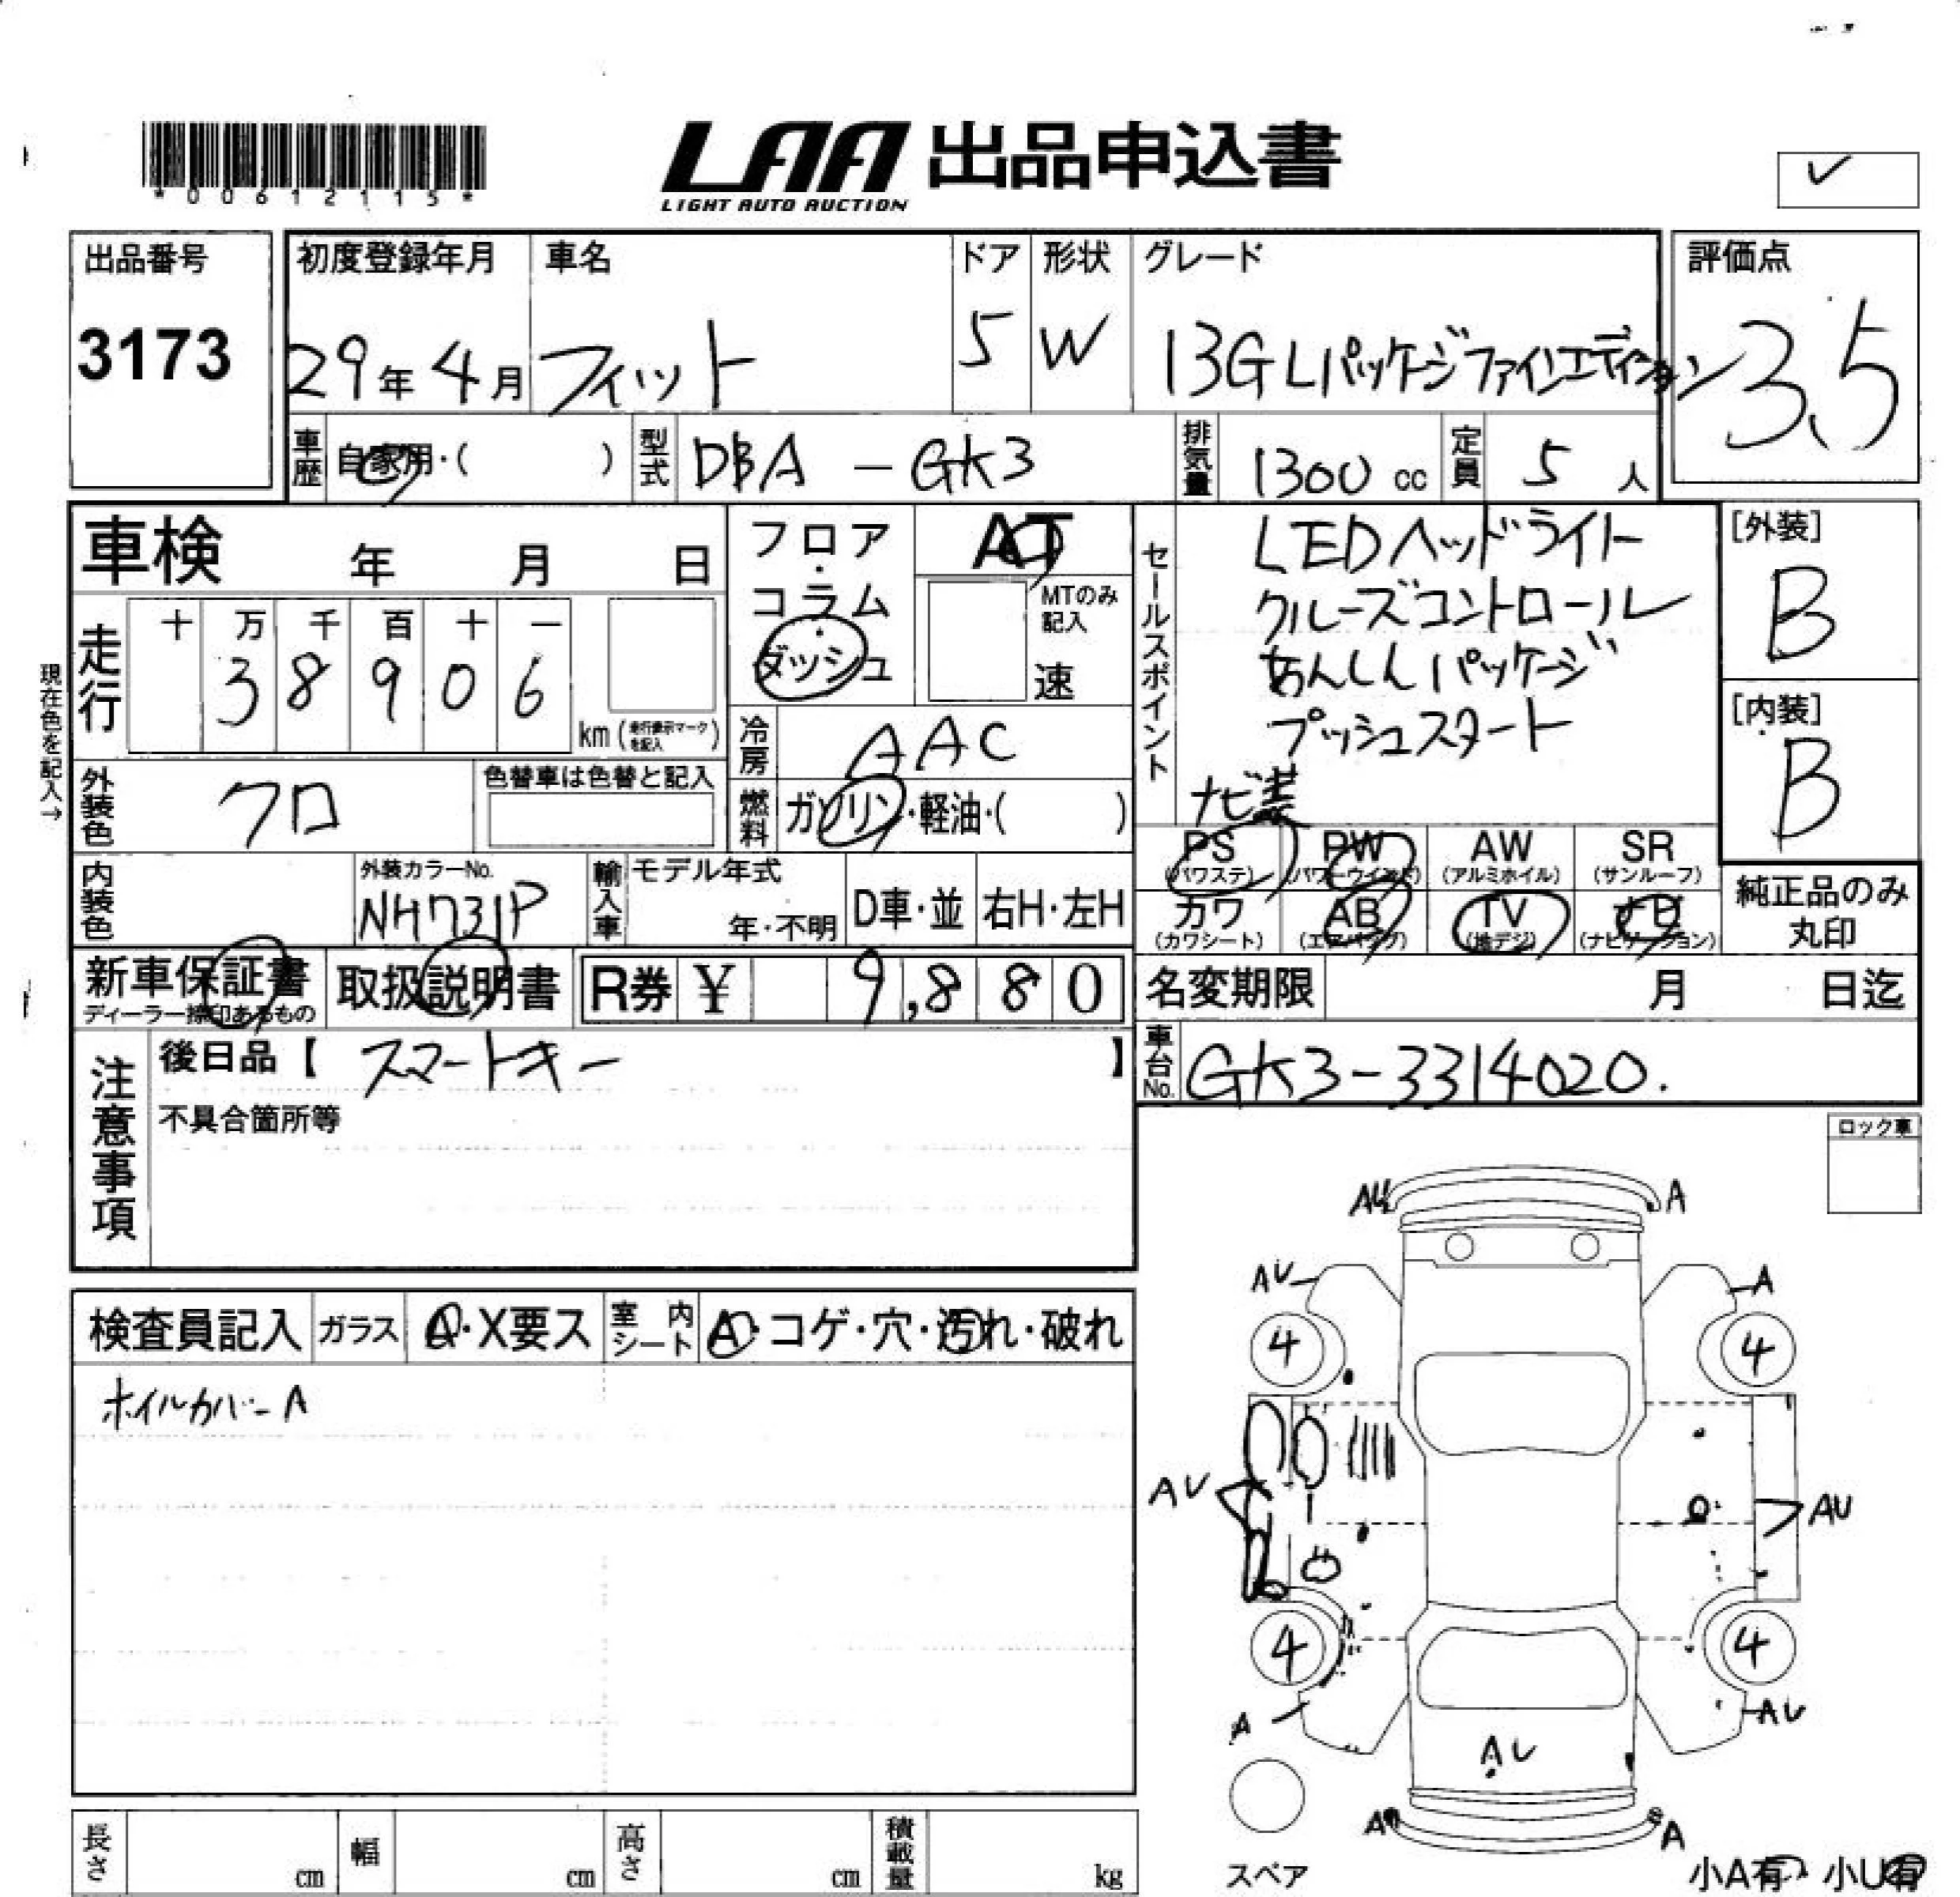 *00612115*
LAA 出品申込書
LIGHT AUTO AUCTION
✓
出品番号
3173
初度登録年月
29年 4月
車名
フィット
ドア
5
形状
W
グレード
13G Lパッケージファインエディション
評価点
3.5
車歴
自家用・( )
型式
DBA - GK3
排気量
1300 cc
定員
5 人
車検 年 月 日
フロア・コラム・ダッシュ
AT
MTのみ記入
速
セールスポイント
LEDヘッドライト
クルーズコントロール
あんしんパッケージ
プッシュスタート
[外装]
B
[内装]
B
現在色を記入→
走行
十 万 千 百 十 一
3 8 9 0 6
km(走行表示マークを記入)
冷房
AAC
外装色
クロ
色替車は色替と記入
燃料
ガソリン・軽油・( )
PS
(パワステ)
PW
(パワーウインド)
AW
(アルミホイル)
SR
(サンルーフ)
内装色
外装カラーNo.
NH731P
輸入車
モデル年式
年・不明
D車・並
右H・左H
カワ
(カワシート)
AB
(エアバッグ)
TV
(地デジ)
ナビ
(ナビゲーション)
純正品のみ
丸印
新車保証書
ディーラー捺印あるもの
取扱説明書
R券 ¥ 9,880
名変期限 月 日迄
注意事項
後日品【 スマートキー 】
不具合箇所等
車台No.
GK3-3314020.
ロック車
検査員記入
ガラス
A・X要ス
室内シート
A・コゲ・穴・汚れ・破れ
ホイルカバーA
AU
A
AU
A
4
4
AU
AU
4
4
A
AU
AU
A
A
スペア
小A有・小U有
長さ cm
幅 cm
高さ cm
積載量 kg